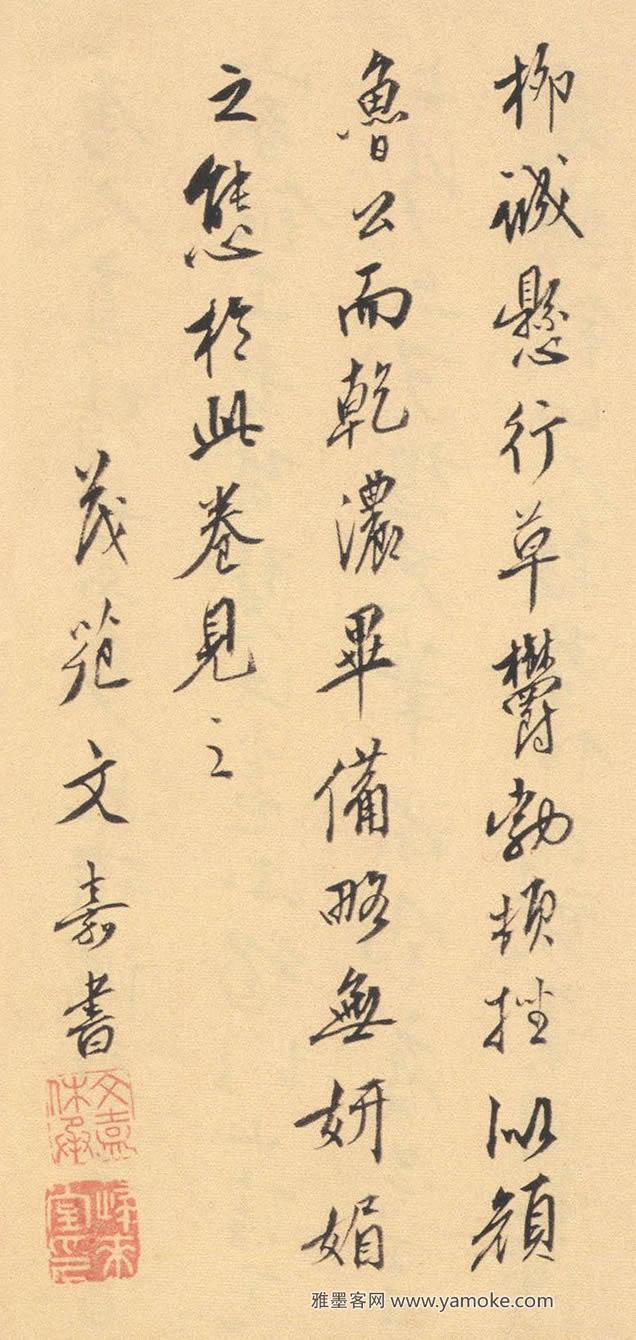 柳誠懸行草鬱勃頓挫似顏
魯公而乾濃畢備略無妍媚
之態於此卷見之
茂苑文嘉書
文嘉休承
雅墨客网 www.yamoke.com